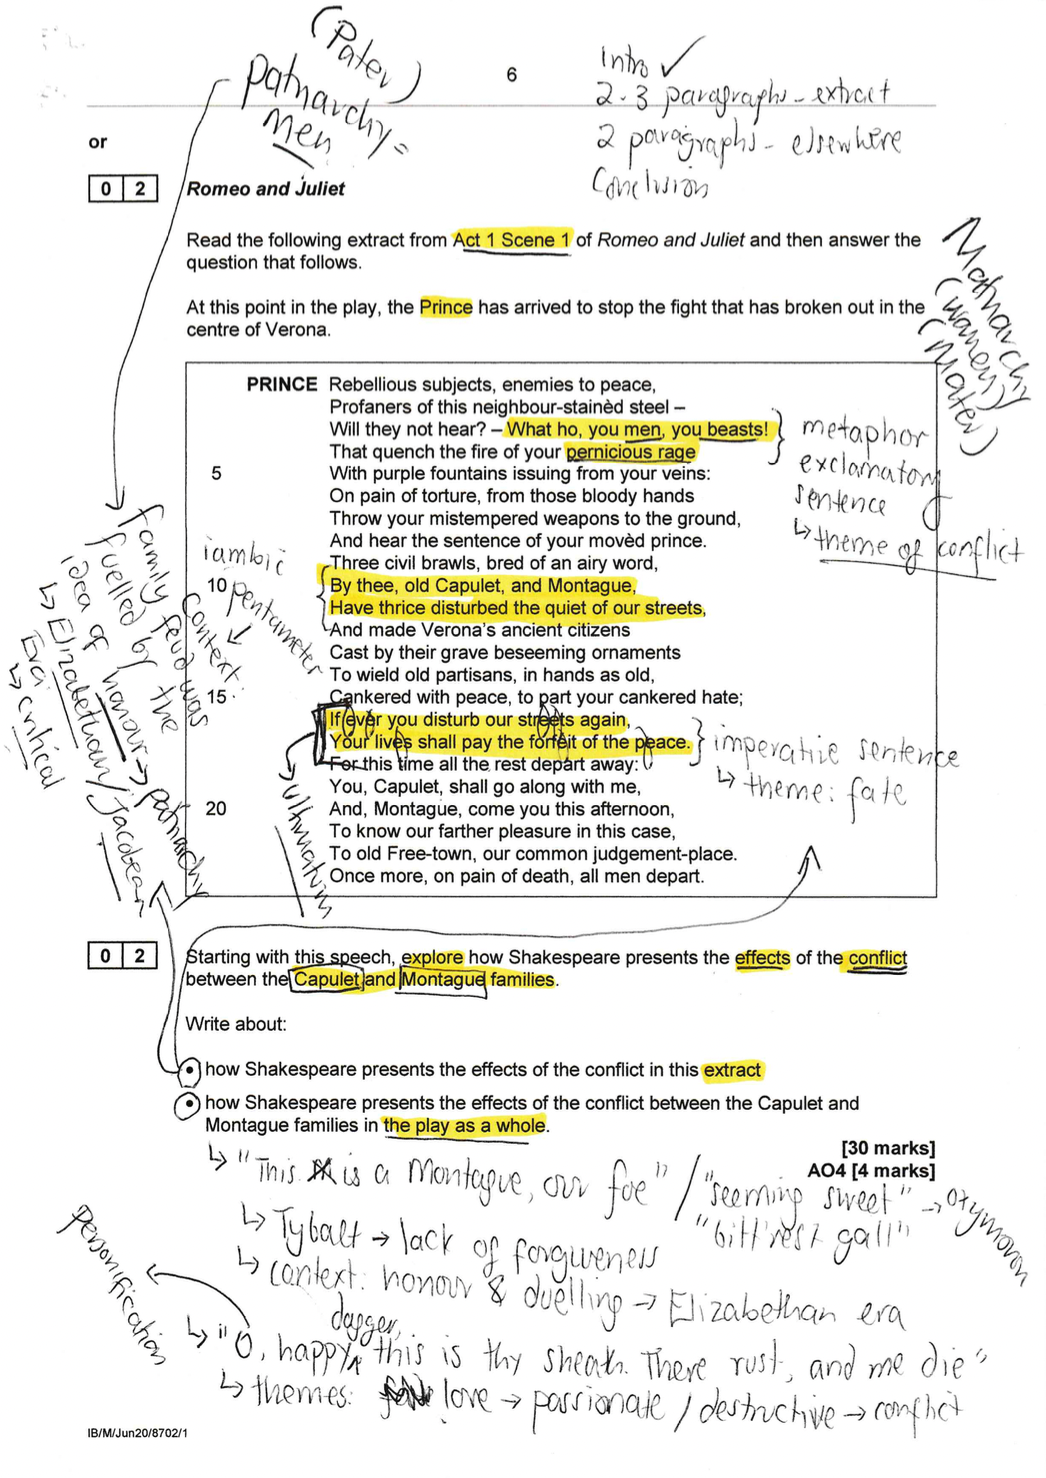 (Pater)
patriarchy =
men
6
Intro ✓
2-3 paragraphs - extract
2 paragraphs - elsewhere
Conclusion
or
0 2
Romeo and Juliet
Read the following extract from Act 1 Scene 1 of Romeo and Juliet and then answer the
question that follows.
At this point in the play, the Prince has arrived to stop the fight that has broken out in the
centre of Verona.
Matriarchy
(women)
(Mater)
PRINCE Rebellious subjects, enemies to peace,
Profaners of this neighbour-stainèd steel –
Will they not hear? – What ho, you men, you beasts!
That quench the fire of your pernicious rage
5 With purple fountains issuing from your veins:
On pain of torture, from those bloody hands
Throw your mistempered weapons to the ground,
And hear the sentence of your movèd prince.
Three civil brawls, bred of an airy word,
10 By thee, old Capulet, and Montague,
Have thrice disturbed the quiet of our streets,
And made Verona's ancient citizens
Cast by their grave beseeming ornaments
To wield old partisans, in hands as old,
15 Cankered with peace, to part your cankered hate;
If ever you disturb our streets again,
Your lives shall pay the forfeit of the peace.
For this time all the rest depart away:
You, Capulet, shall go along with me,
20 And, Montague, come you this afternoon,
To know our farther pleasure in this case,
To old Free-town, our common judgement-place.
Once more, on pain of death, all men depart.
metaphor
exclamatory
sentence
↳ theme of conflict
imperative sentence
↳ theme: fate
iambic
pentameter
ultimatum
context:
family feud was
fuelled by the
idea of honour → patriarchy
↳ Elizabethan/Jacobean
Era
↳ critical
0 2
Starting with this speech, explore how Shakespeare presents the effects of the conflict
between the Capulet and Montague families.
Write about:
• how Shakespeare presents the effects of the conflict in this extract
• how Shakespeare presents the effects of the conflict between the Capulet and
Montague families in the play as a whole.
[30 marks]
AO4 [4 marks]
↳ "This is a Montague, our foe" / "seeming sweet" → oxymoron
"bitt'rest gall"
↳ Tybalt → lack of forgiveness
↳ context: honour & duelling → Elizabethan era
personification
↳ "O, happy dagger, this is thy sheath. There rust, and me die"
↳ themes: love → passionate / destructive → conflict
IB/M/Jun20/8702/1